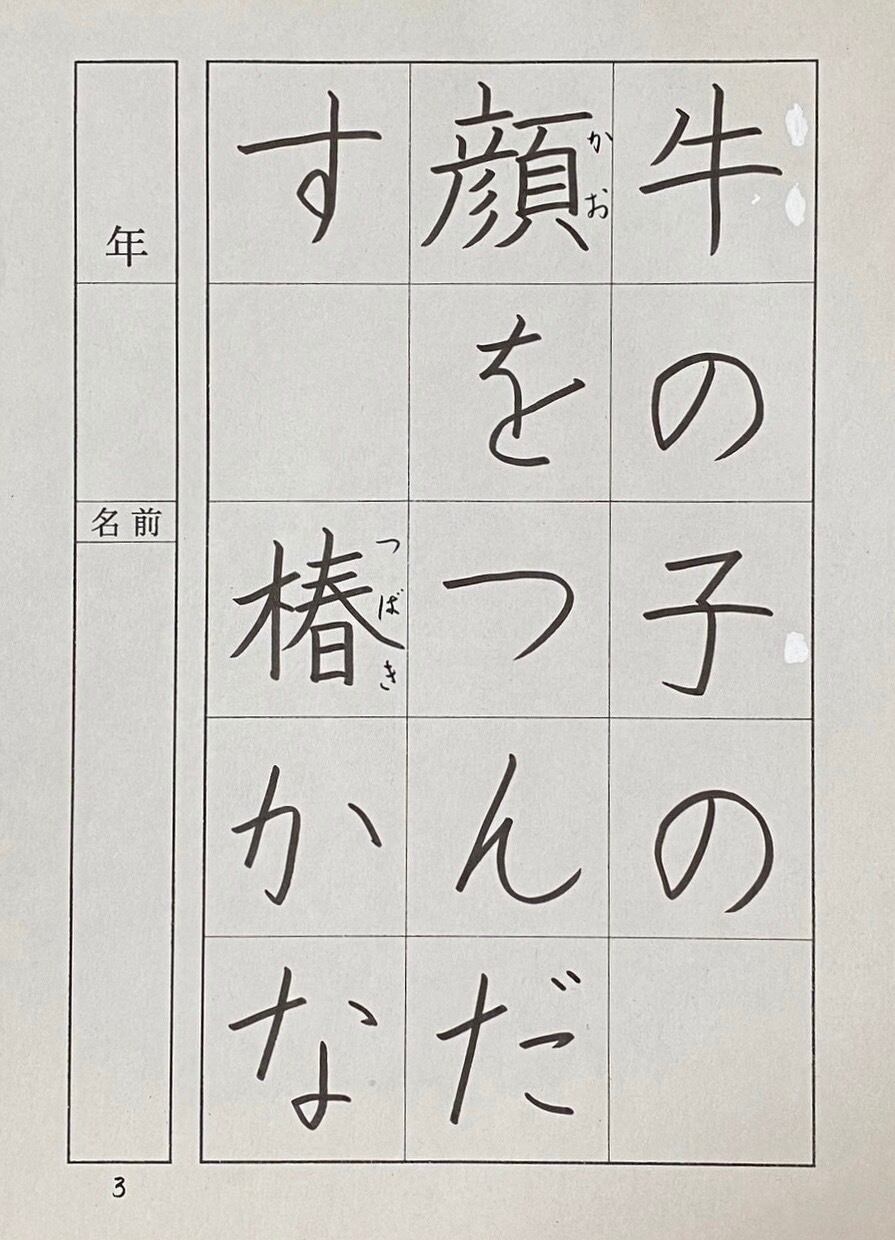 牛の子の
顔をつんだ
す 椿かな
かお
つばき
年
名前
3